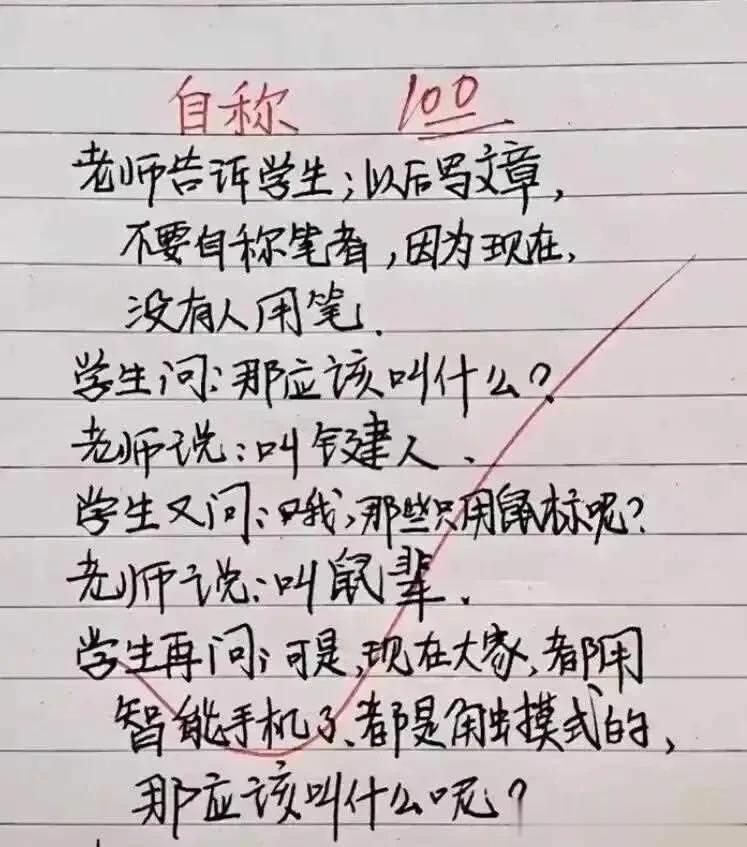 自称 100
老师告诉学生;以后写文章,
不要自称笔者,因为现在,
没有人用笔.
学生问:那应该叫什么?
老师说:叫键人.
学生又问:哦,那些只用鼠标呢?
老师说:叫鼠辈.
学生再问;可是,现在大家,都用
智能手机了、都是触摸式的,
那应该叫什么呢?